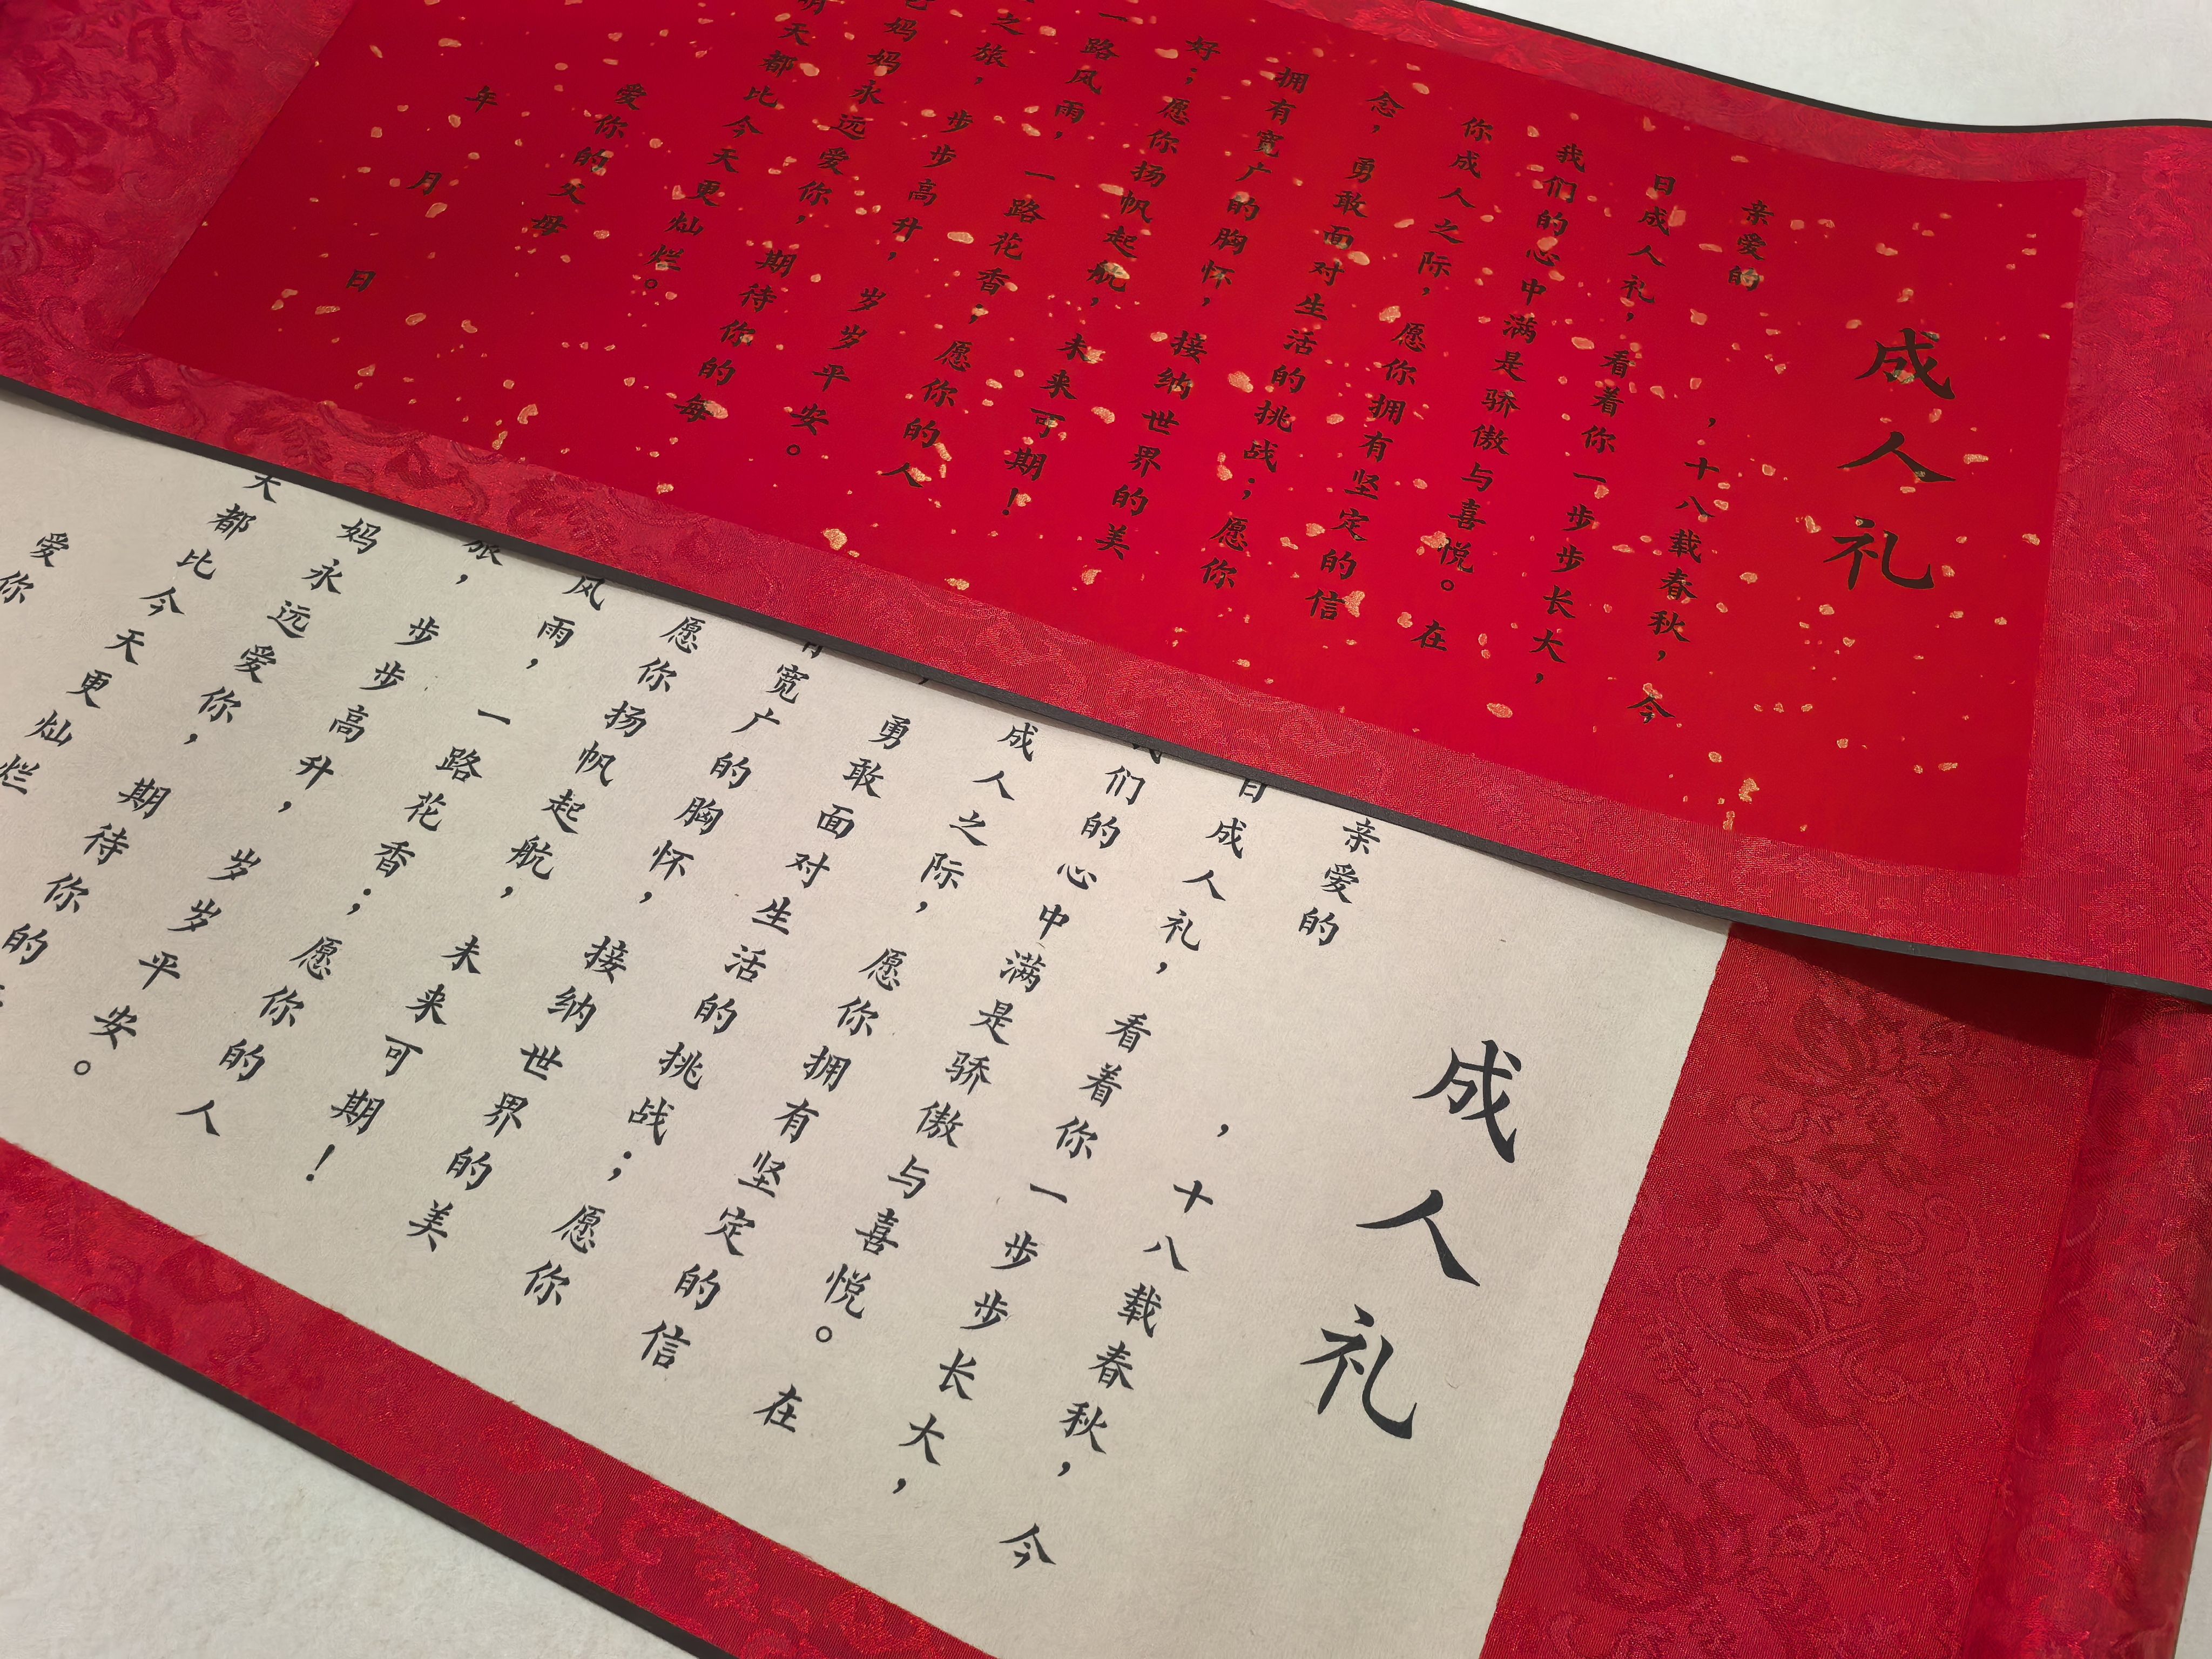 成人礼
亲爱的
，十八载春秋，今
日成人礼，看着你一步步长大，
我们的心中满是骄傲与喜悦。在
你成人之际，愿你拥有坚定的信
念，勇敢面对生活的挑战；愿你
拥有宽广的胸怀，接纳世界的美
好；愿你扬帆起航，未来可期！
一路风雨，一路花香；愿你的人
之旅，步步高升，岁岁平安。
妈妈永远爱你，期待你的每
明天都比今天更灿烂。
爱你的父母
年 月 日
成人礼
亲爱的
，十八载春秋，今
日成人礼，看着你一步步长大，
们的心中满是骄傲与喜悦。在
成人之际，愿你拥有坚定的信
勇敢面对生活的挑战；愿你
有宽广的胸怀，接纳世界的美
愿你扬帆起航，未来可期！
风雨，一路花香；愿你的人
旅，步步高升，岁岁平安。
妈永远爱你，期待你的
天都比今天更灿烂
爱你